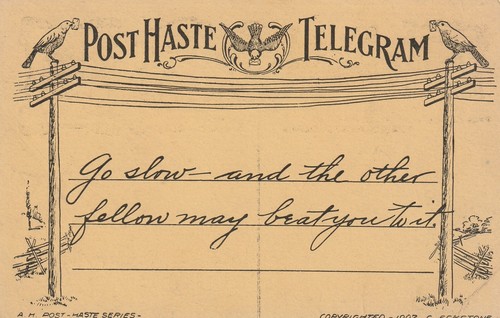 POST HASTE TELEGRAM
Go slow - and the other
fellow may beat you to it.
A.H. POST-HASTE SERIES-
COPYRIGHTED - 1907